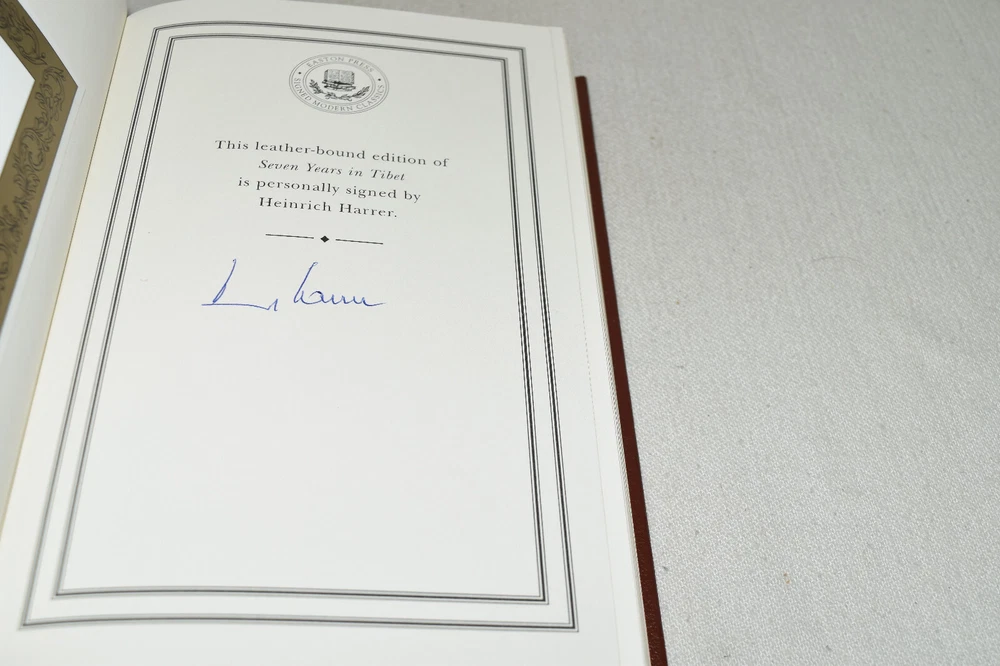 EASTON PRESS
SIGNED MODERN CLASSICS
This leather-bound edition of
Seven Years in Tibet
is personally signed by
Heinrich Harrer.